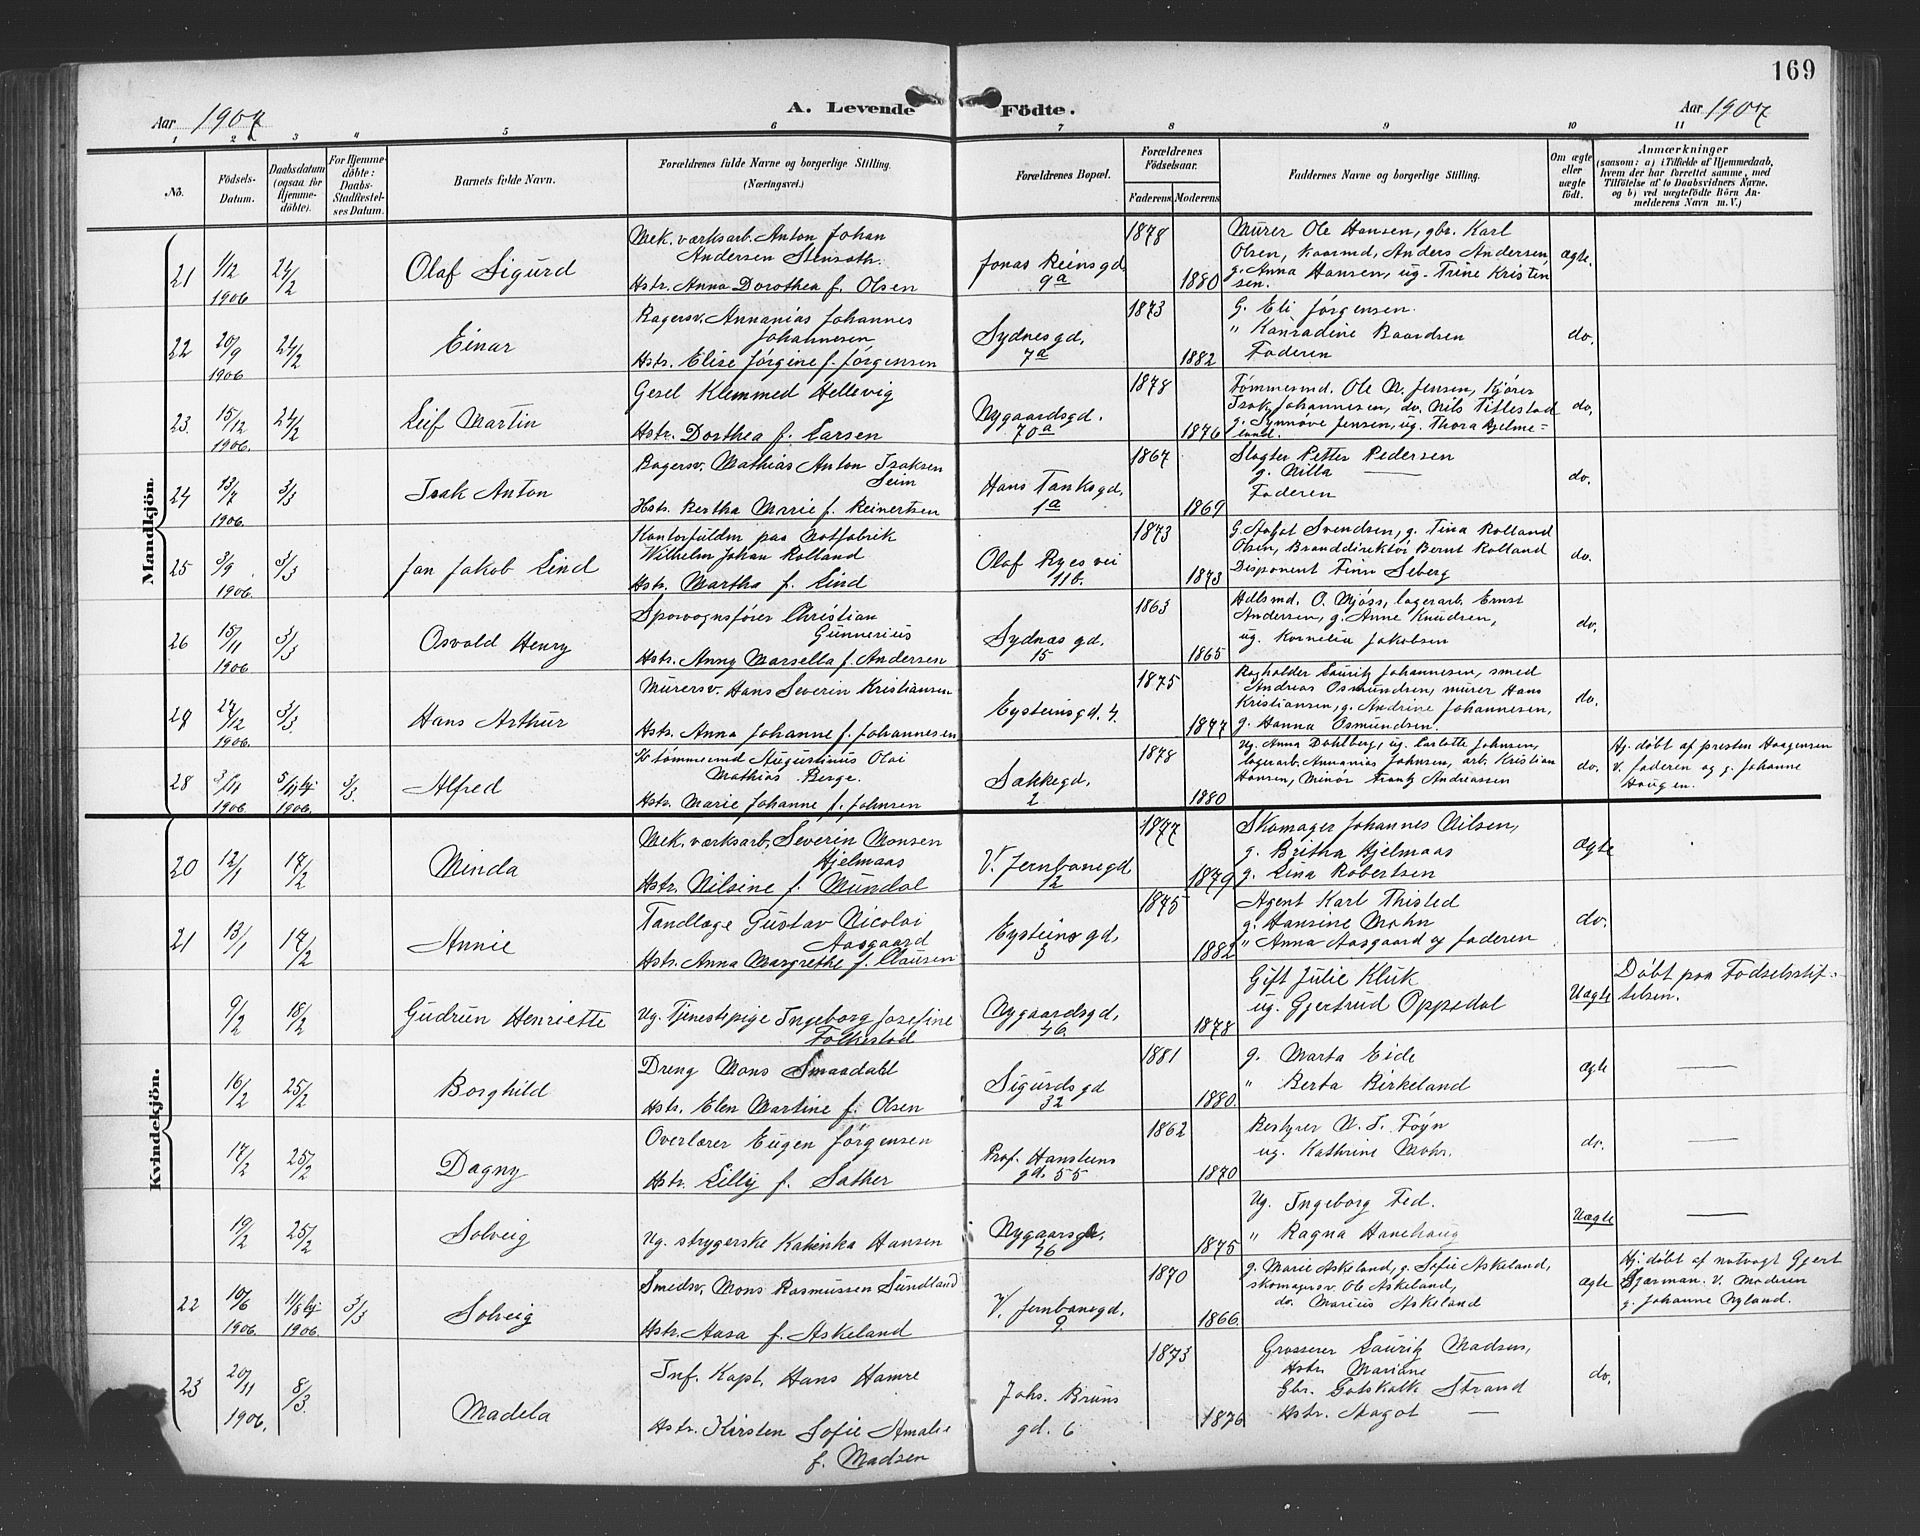 169
A. Levende Födte.
Aar 1907
Aar 1907
1 2 3 4 5 6 7 8 9 10 11
No.
Födsels-Datum.
Daabsdatum (ogsaa for Hjemme-döbte).
For Hjemme-döbte: Daabs-Stadfæstel-ses Datum.
Barnets fulde Navn.
Forældrenes fulde Navne og borgerlige Stilling.
(Næringsvei.)
Forældrenes Bopæl.
Forældrenes Födselsaar.
Faderens Moderens
Faddernes Navne og borgerlige Stilling.
Om ægte eller uægte födt.
Anmærkninger
(saasom: a) i Tilfælde af Hjemmedaab,
hvem der har forrettet samme, med
Tilföielse af to Daabsvidners Navne,
og b) ved uægtefödte Börn An-
melderens Navn m. V.)
Mandkjön.
21 1/12 1906 24/2 Olaf Sigurd
Mek. værksarb. Anton Johan
Andersen Stensøth.
Hstr. Anna Dorothea f. Olsen
Jonas Reinsgd. 9a
1878 1880
Murer Ole Hansen, gbr. Karl
Olsen, kaarmd. Anders Andersen,
g. Anna Hansen, ug. Trine Kristen
sen.
ægte.
22 20/9 1906 24/2 Einar
Bagersv. Annanias Johannes
Johannesen,
Hstr. Elise Jørgine f. Jørgensen
Sydnesgd, 7a
1873 1882
G. Eli Jørgensen.
" Konradine Baardsen
Faderen
do.
23. 15/12 1906. 24/2 Leif Martin
Gesel Klemmed Hellevig
Hstr. Dorthea f. Larsen
Nygaardsgd. 70a
1878 1876
Tømmesmd. Ole N. Jensen, Kjører
Isak Johannesen, do. Nils Tittestad
g. Synnøve Jensen, ug. Thora Hjelme=
land.
do.
24 13/7 1906. 3/3 Isak Anton
Bagersv. Mathias Anton Isaksen
Seim
Hstr. Bertha Marie f. Reinertsen
Hans Tanksgd, 1a
1867 1869
Slagter Petter Pedersen
g. Nilla —
Faderen
do.
25 3/9 1906. 3/3 Jan Jakob Lind
Kontorfuldm paa Notfabrik
Wilhelm Johan Rolland
Hstr. Martha f. Lind
Olaf Ryes vei 11b.
1873 1873
G. Aagot Svendsen, g. Tina Rolland
Olsen, Branddirektør Bernt Rolland
Disponent Finn Seberg
do.
26 15/11 1906 3/3 Osvald Henry
Sporvognsfører Christian
Gunnerius
Hstr. Anny Marsella f. Andersen
Sydnæsgd. 15
1863 1865
Hdlsmd. O. Mjøss, lagerarb. Ernst
Andersen, g. Anne Knudsen,
ug. Kornelia Jakobsen
do.
27 27/12 1906. 3/3 Hans Arthur
Murersv. Hans Severin Kristiansen
Hstr. Anna Johanne f. Johannesen
Eysteinsgd. 4.
1875 1877
Bogholder Lauritz Johannesen, smed
Andreas Osmundsen, murer Hans
Kristiansen, g. Andrine Johannesen,
g. Hanna Osmundsen.
do.
28 3/11 1906 5/11 hj. 1906. 3/3. Alfred
tømmermd Augustinus Olai
Mathias Berge.
Hstr. Marie Johanne f. Johnsen
Sækkegd, 2
1878 1880
Ug. Anna Dahlberg, ug. Carlotte Johnsen,
lagerarb. Annanias Johnsen, arb. Kristian
Hansen, Minør Frantz Andreassen
do.
Hj. døbt af presten Haagensen
v. faderen og g. Johanne
Haugen.
Kvindekjön.
20 12/1 17/2 Minda
Mek. værksarb. Severin Monsen
Hjelmaas
Hstr. Nilsine f. Mundal
V. Jernbanegd. 12
1877 1879
Skomager Johannes Nilsen,
g. Britha Hjelmaas
g. Lina Robertsen
ægte
21 13/1 17/2 Annie
Tandlæge Gustav Nicolai
Aasgaard
Hstr. Anna Margrethe f. Clausen
Eysteinsgd, 3
1875 1882
Agent Karl Thisted
g. Hansine Mohn
" Anna Aasgaard og faderen
do.
9/2 18/2 Gudrun Henriette
Ug. Tjenestepige Ingeborg Josefine
Folkestad
Nygaardsgd, 46
1878
Gift Julie Kluk
ug. Gjertrud Oppedal
Uægte
Døbt paa Fødselsstif-
telsen.
16/2 25/2 Borghild
Dreng Mons Smaadahl
Hstr. Elen Martine f. Olsen
Sigurdsgd 32
1881 1880.
g. Marta Eide
" Berta Birkeland
ægte
—
17/2 25/2 Dagny
Overlærer Eugen Jørgensen
Hstr. Lilly f. Sæther
Prof. Hansteens gd. 55
1862 1870
Bestyrer N. S. Føyn
ug. Kathrine Mohr.
do.
—
19/2 25/2 Solveig
Ug. strygerske Katinka Hansen
Nygaarsgd. 46
1875
Ug. Ingeborg Fed.
" Ragna Hanehaug
Uægte
—
22 10/6 1906. 11/8 hj. 1906. 3/3 Solveig
Smedsv. Mons Rasmussen Sundland
Hstr. Aasa f. Askeland
V. Jernbanegd, 9
1870 1866
g. Marie Askeland, g. Sofie Askeland,
skomagersv. Ole Askeland,
do. Marius Askeland
ægte
Hj. døbt af natvagt Gjert
Bjarman. v. Moderen
g. Johanne Nyland.
23 20/11 1906. 8/3. Madela
Inf. Kapt. Hans Hamre
Hstr. Kirsten Sofie Amalie
f. Madsen
Johs. Bruns
gd. 6
1873 1876
Grosserer Lauritz Madsen,
Hstr. Mariane
Gbr. Gotskalk Strand
Hstr. Aagot —
do.